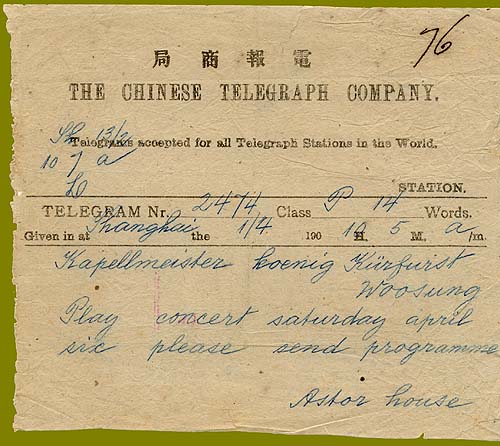 76
局商報電
THE CHINESE TELEGRAPH COMPANY.
Telegrams accepted for all Telegraph Stations in the World.
10 7 a
STATION.
TELEGRAM Nr. 2474 Class P 14 Words.
Given in at Shanghai the 1/4 190 10 H. 5 M. a/m.
Kapellmeister Koenig Kürfurst
Woosung
Play concert saturday april
six please send programme
Astor house